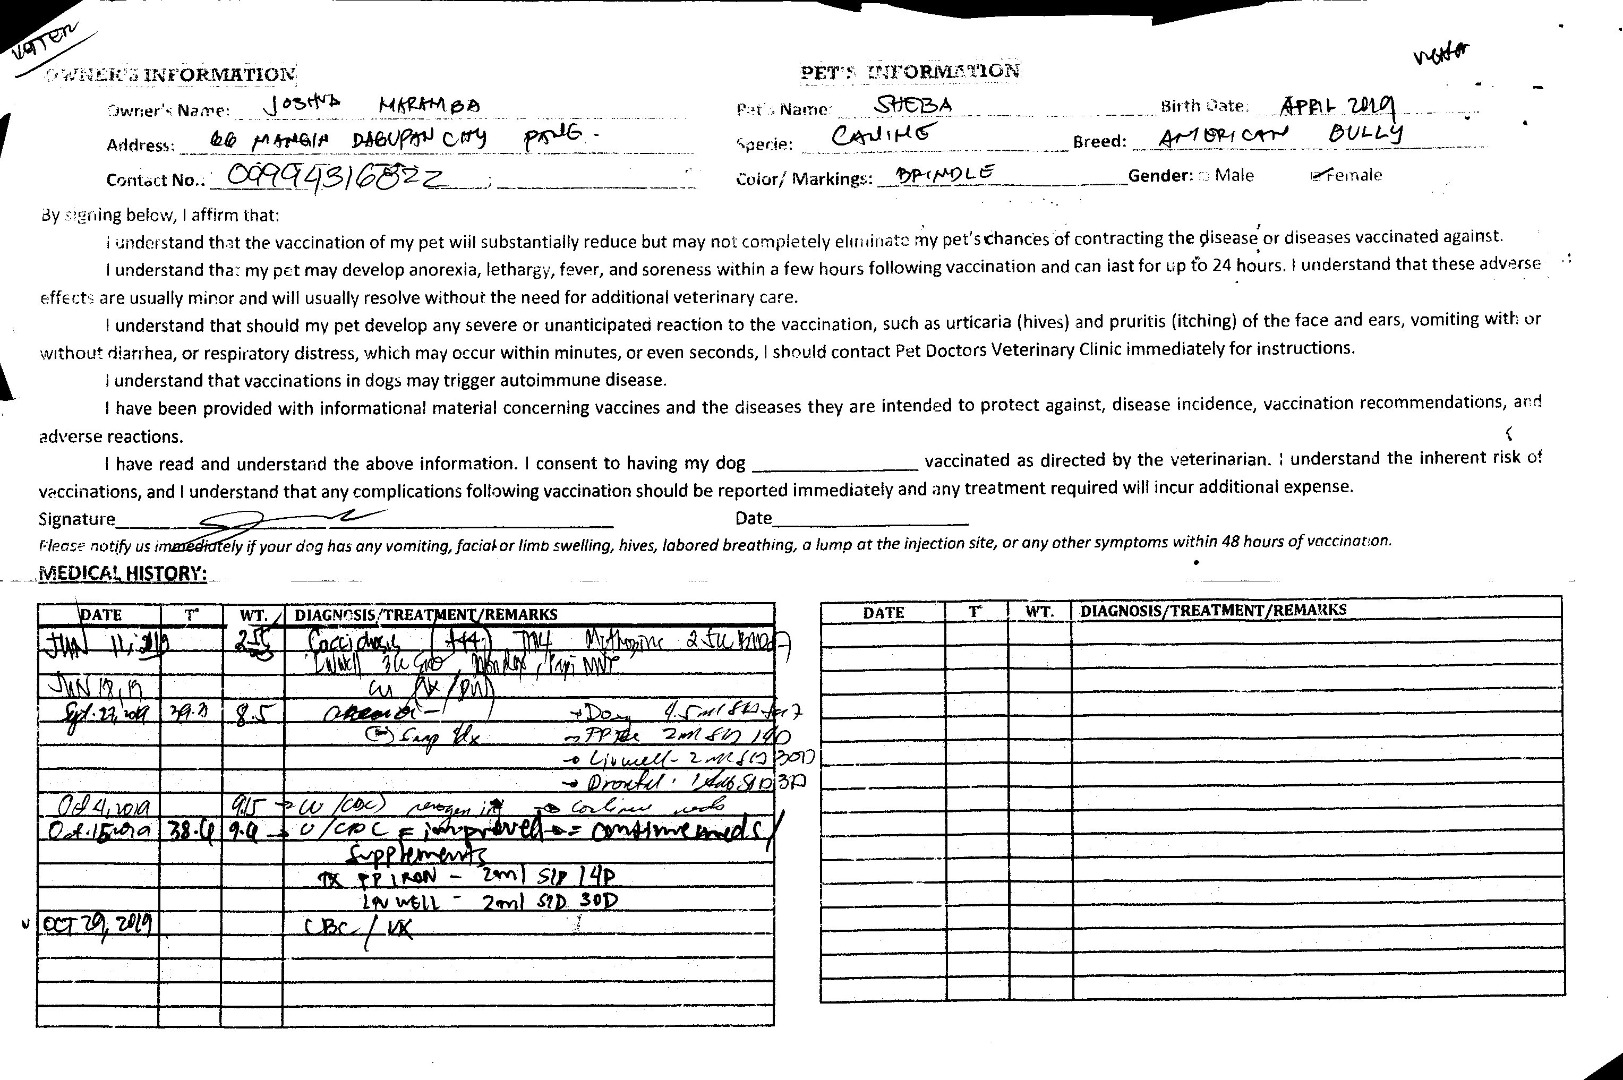 VOTER
OWNER'S INFORMATION
PET'S INFORMATION
Owner's Name: JOSHUA MARAMBA
Pet's Name: SHEBA
Birth Date: APRIL 2019
Address: 66 MANGIN DAGUPAN CITY PANG.
Specie: CANINE
Breed: AMERICAN BULLY
Contact No.: 09994316822
Color/ Markings: BRINDLE
Gender: Male Female
By signing below, I affirm that:
I understand that the vaccination of my pet will substantially reduce but may not completely eliminate my pet's chances of contracting the disease or diseases vaccinated against.
I understand that my pet may develop anorexia, lethargy, fever, and soreness within a few hours following vaccination and can last for up to 24 hours. I understand that these adverse
effects are usually minor and will usually resolve without the need for additional veterinary care.
I understand that should my pet develop any severe or unanticipated reaction to the vaccination, such as urticaria (hives) and pruritis (itching) of the face and ears, vomiting with or
without diarrhea, or respiratory distress, which may occur within minutes, or even seconds, I should contact Pet Doctors Veterinary Clinic immediately for instructions.
I understand that vaccinations in dogs may trigger autoimmune disease.
I have been provided with informational material concerning vaccines and the diseases they are intended to protect against, disease incidence, vaccination recommendations, and
adverse reactions.
I have read and understand the above information. I consent to having my dog ________________ vaccinated as directed by the veterinarian. I understand the inherent risk of
vaccinations, and I understand that any complications following vaccination should be reported immediately and any treatment required will incur additional expense.
Signature
Date
Please notify us immediately if your dog has any vomiting, facial or limb swelling, hives, labored breathing, a lump at the injection site, or any other symptoms within 48 hours of vaccination.
MEDICAL HISTORY:
DATE T° WT. DIAGNOSIS/TREATMENT/REMARKS
DATE T° WT. DIAGNOSIS/TREATMENT/REMARKS
JUN 11, 2019 Coccidiosis
JUN 18, 19
Sept. 27, 2019 8.5
→ Livwell - 2ml SID 30D
Oct 4, 2019 9.5 → continue meds
Oct. 15, 2019 38.4 9.9 → U/CBC = improved → = continue meds/
supplements
TX PP IRON - 2ml SID 14D
LIVWELL - 2ml SID 30D
OCT 29, 2019 CBC / VX